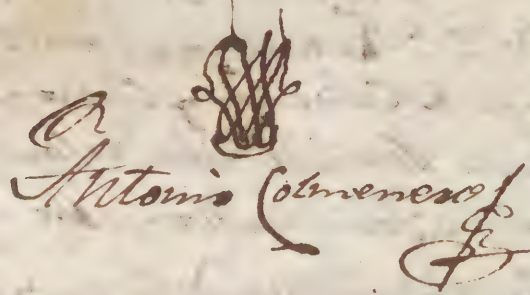 Antonio Colmenero